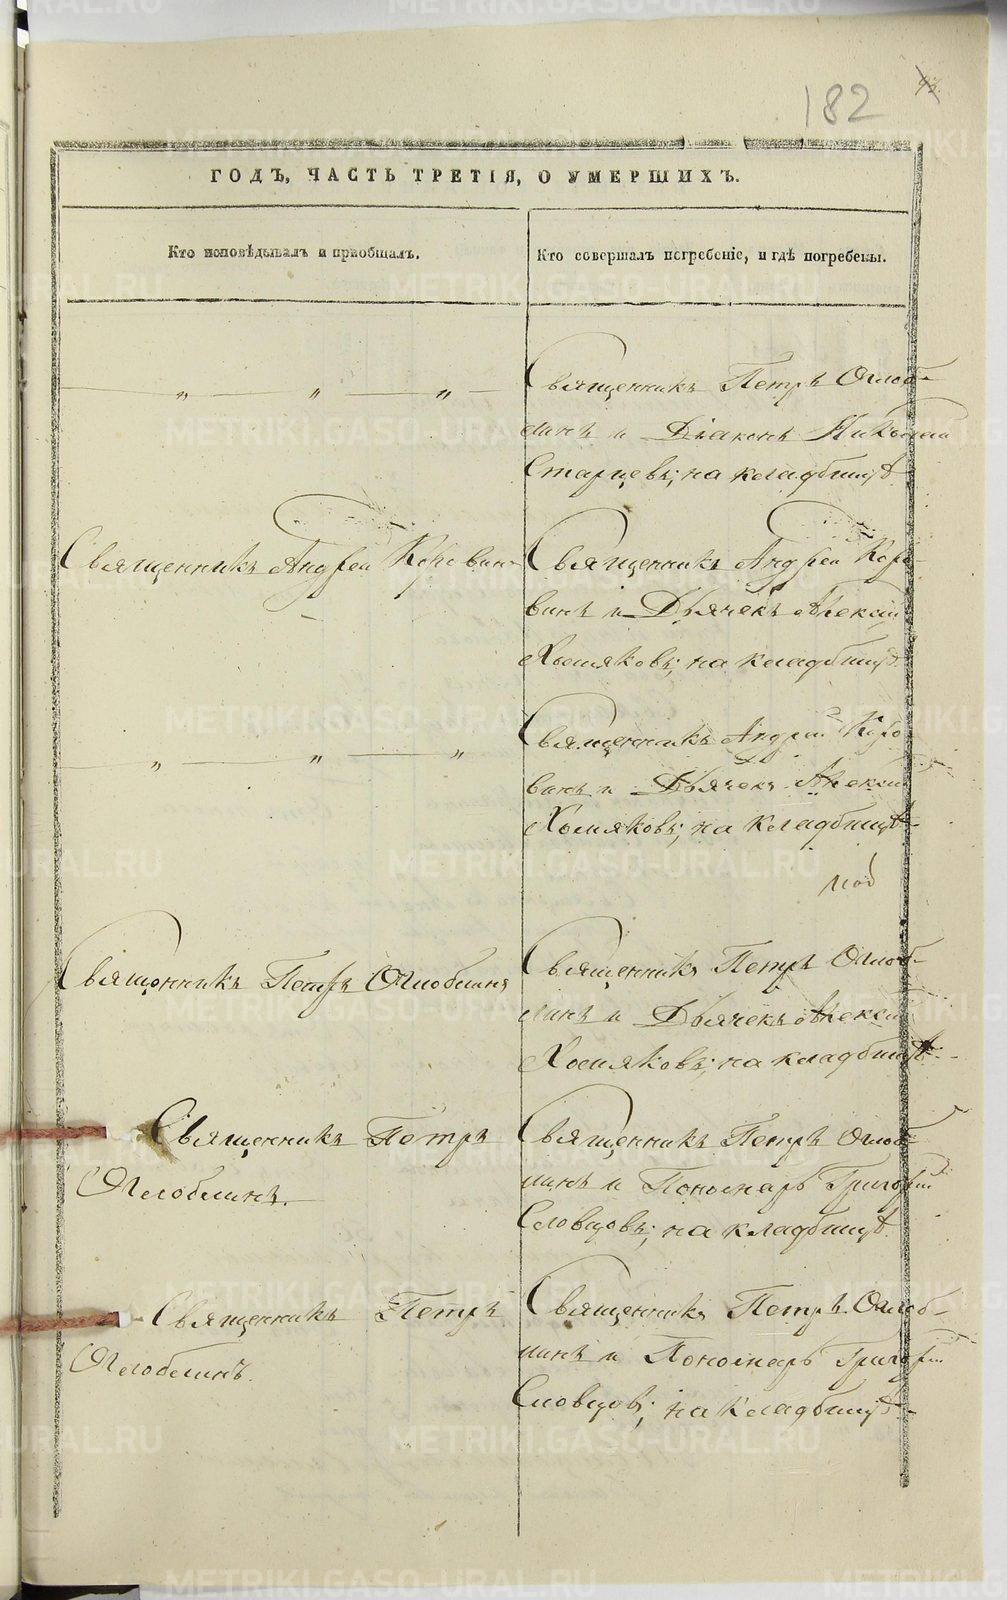 182
ГОДЪ, ЧАСТЬ ТРЕТІЯ, О УМЕРШИХЪ.
Кто исповѣдывалъ и пріобщалъ.
Кто совершалъ погребеніе, и гдѣ погребены.
— „ — „ — „ —
Священникъ Петръ Оглоб-
линъ и Діаконъ Николай
Старцевъ; на кладбищѣ.
Священникъ Андрей Коровинъ
Священникъ Андрей Коро
винъ и Дьячекъ Алексѣй
Хомяковъ; на кладбищѣ.
— „ — „ — „
Священникъ Андрей Коро
винъ и Дьячекъ Алексѣй
Хомяковъ; на кладбищѣ.
Священникъ Петръ Оглоблинъ
Священникъ Петръ Оглоб-
линъ и Дьячекъ Алексѣй
Хомяковъ; на кладбищѣ.
Священникъ Петръ
Оглоблинъ.
Священникъ Петръ Оглоб-
линъ и Пономарь Григорій
Словцовъ; на кладбищѣ.
Священникъ Петръ
Оглоблинъ.
Священникъ Петръ Оглоб-
линъ и Пономарь Григорій
Словцовъ; на кладбищѣ.
METRIKI.GASO-URAL.RU